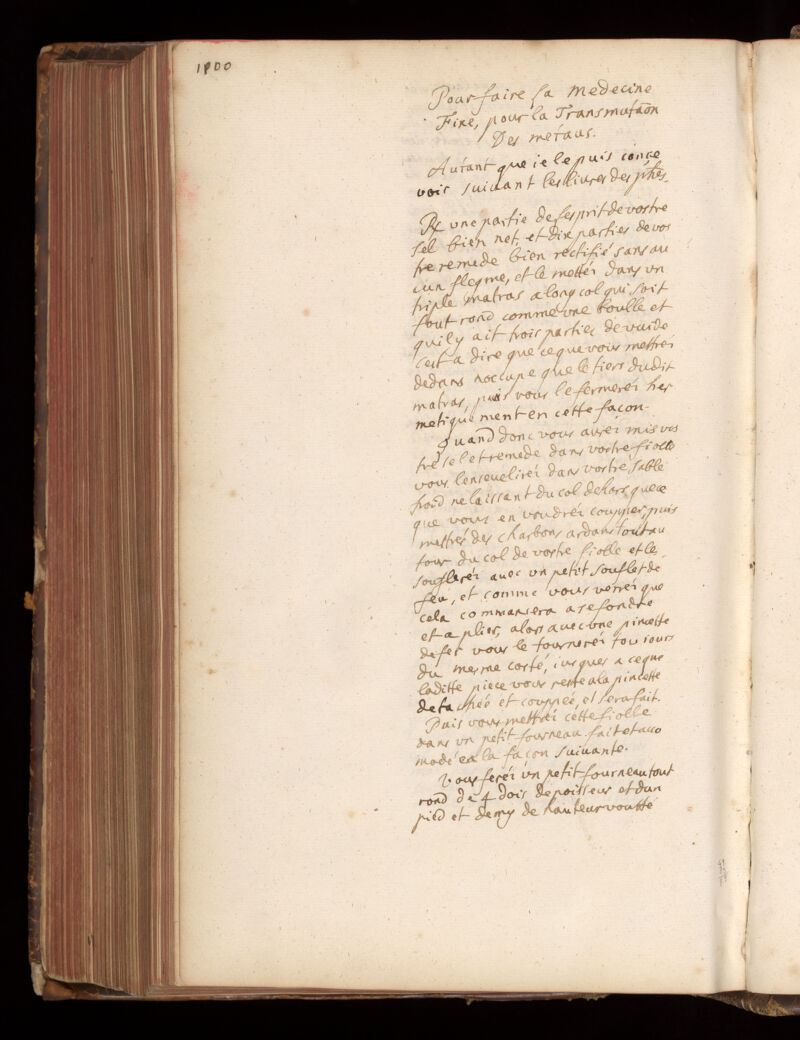 1900
Pour faire la Medecine
Fixe, pour la Transmutãon
Des metaus.
Autant que ie le puis conce
vois suiuant les liures des phēs.
℞ vne partie de lesprit de vostre
sel bien net, et dix parties de vos
tre remede bien rectifié sans au
cun flegme, et le mettéi dans vn
triple matras a long col qui soit
tout rond comme vne boulle et
quil y ait trois parties de vuide
cest a dire que ce que vous mettréi
dedans noccupe que le tiers dudit
matras, puis vous le fermeréi her
metiquement en cette facon.
Quand donc vous auréi mis vos
tre sel et remede dans vostre fiolle
vous lenseueliréi dans vostre sable
froid ne laissant du col dehors que ce
que vous en voudréi coupper, puis
mettrés des charbons ardans tout au
tour du col de vostre fiolle et le
soufleréi auec vn petit souflet de
feu, et comme vous verréi que
cela commansera a se fondre
et a plier, alors auec vne pincette
de fer vous le tourneréi tousiours
du mesme costé, iusques a ce que
laditte piece vous reste a la pincette
detachéé et couppéé, et sera fait.
Puis vous mettréi cette fiolle
dans vn petit fourneau fait et acco
modé a la facon suiuante.
Vous feréi vn petit fourneau tout
rond de 4 dois depoisseur et dun
pied et demy de hauteur voutté